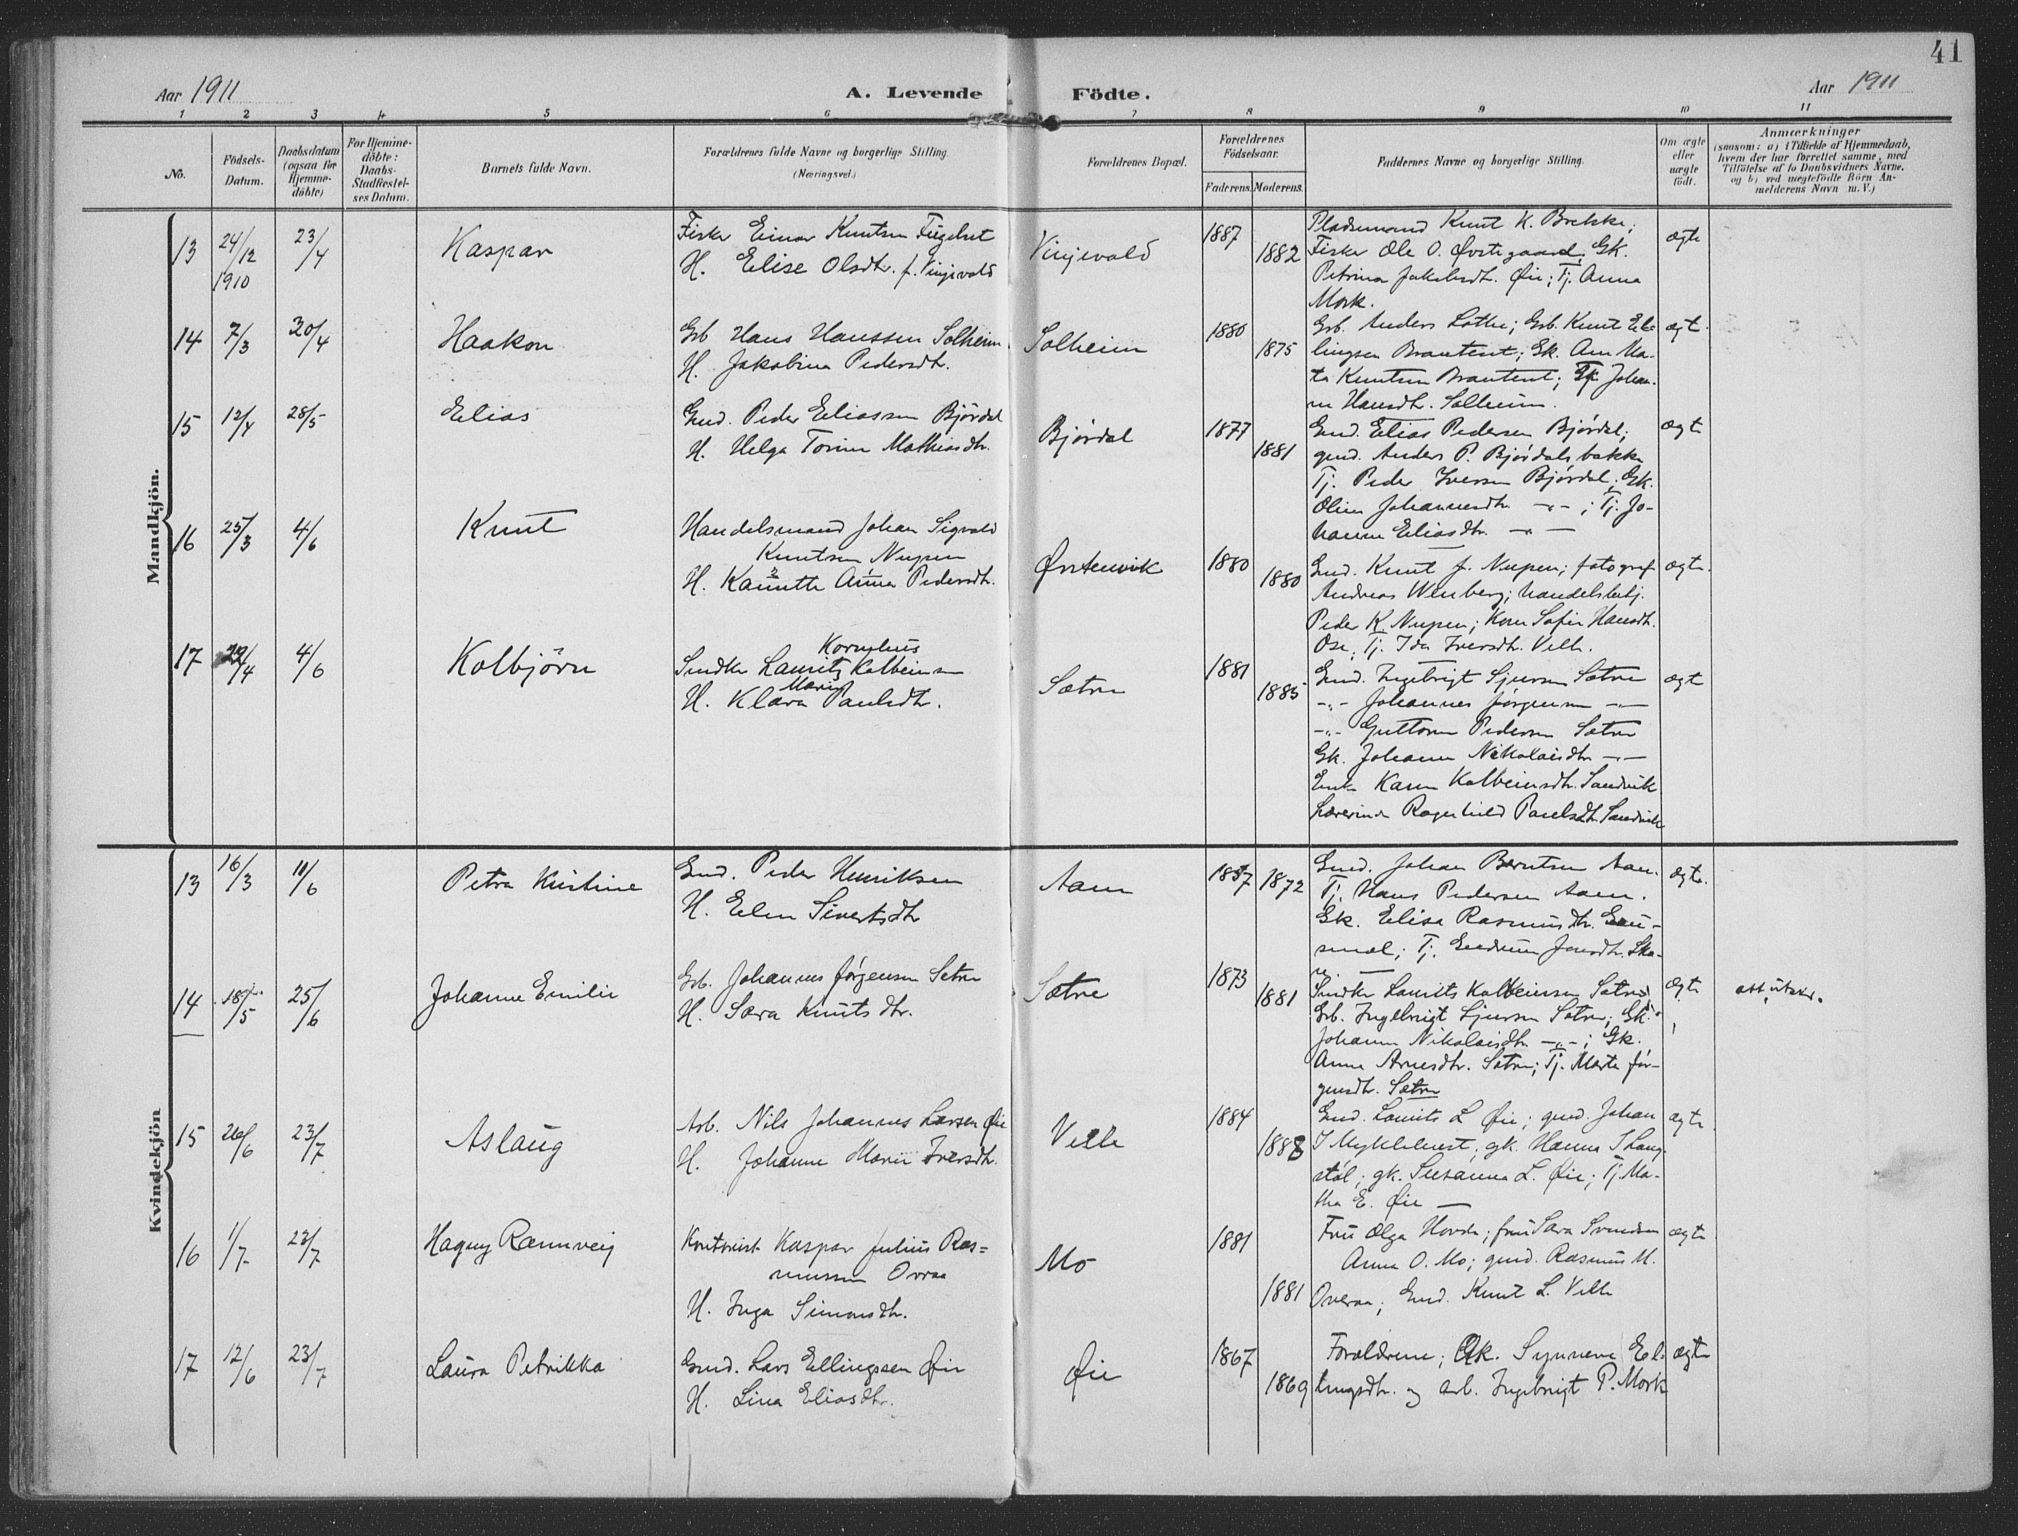 41
Aar 1911
A. Levende Födte.
Aar 1911
1 2 3 4 5 6 7 8 9 10 11
No.
Födsels-
Datum.
Daabsdatum
(ogsaa for
Hjemme-
döbte)
For Hjemme-
döbte:
Daabs-
Stadfæstel-
ses Datum.
Barnets fulde Navn.
Forældrenes fulde Navne og borgerlige Stilling.
(Næringsvei.)
Forældrenes Bopæl.
Forældrenes
Födselsaar.
Faderens. Moderens.
Faddernes Navne og borgerlige Stilling.
Om ægte
eller
uægte
födt.
Anmærkninger
(saasom: a) i Tilfælde af Hjemmedaab,
hvem der har forrettet samme, med
Tilföielse af to Daabsvidners Navne,
og b) ved uægtefödte Börn An-
melderens Navn m. V.)
Mandkjön.
13
24/12
1910
23/4
Kaspar
Fisker Einar Knutsen Fugelset
H. Elise Olsdtr. f. Vinjevold
Vinjevold
1887
1882
Pladsmand Knut K. Brekke;
Fisker Ole O. Øvstegaard; Gk.
Petrina Jakobsdtr. Øie; Tj. Anna
Mork.
ægte
14
7/3
30/4
Haakon
Grb Hans Hanssen Solheim
H. Jakobina Pedersdtr.
Solheim
1880
1875
Grb. Anders Lothe; Grb. Knut El-
lingsen Brautaset; Gk. Ane Ma-
ta Knutsen Brautaset; Tj. Johan-
ne Hansdtr. Solheim.
ægte
15
12/4
28/5
Elias
Gmd. Peder Eliassen Bjørdal
H. Helga Torine Mathiasdtr.
Bjørdal
1877
1881
Gmd. Elias Pedersen Bjørdal;
gmd. Anders P. Bjørdalsbakke
Tj. Peder Iversen Bjørdal; Gk.
Oline Johannesdtr. -"- ; Tj. Jo-
hanne Eliasdtr. -"-
ægte
16
25/3
4/6
Knut
Handelsmand Johan Sigvald
Knutsen Nupen
H. Kanutte Anna Pedersdtr.
Ørstenvik
1880
1880
Gmd. Knut J. Nupen; fotograf
Andreas Wenberg; handelsbetj.
Peder K. Nupen; Kone Sofie Hansdtr.
Ose; Tj. Ida Iversdtr. Velle.
ægte
17
4/6
Kolbjørn
Kornelius
Smdkr Lauritz Kolbeinsen
Marie
H. Klara Paulsdtr.
Sætre
1881
1885
Gmd. Ingebrigt Sjursen Sætre
-"- Johannes Jørgensen -"-
-"- Guttorm Pedersen Sætre
Gk. Johanne Nikolaisdtr -"-
Enke Karen Kolbeinsdtr. Sandvik
Lærerinde Ragnhild Paulsdtr. Sandvik
ægte
Kvindekjön
13
16/3
11/6
Petra Kristine
Gmd. Peder Henriksen
H. Elen Sivertsdtr
Aam
1857
1872
Gmd. Johan Berntsen Aam.
Tj. Hans Pedersen Aam.
Gk. Elisa Rasmusdtr. Eau-
smæl; Tj. Gudrun Jonsdtr. Ska-
re.
ægte
14
18/5
25/6
Johanne Emilie
Grb. Johannes Jørgensen Sætre
H. Sara Knutsdtr.
Sætre
1873
1881
Smdkr Laurits Kolbeinsen Sætre
Grb. Ingebrigt Sjursen Sætre; Gk.
Johanne Nikolaisdtr -"-; Gk.
Anna Arnesdtr. Sætre; Tj. Marta Jør-
gensdtr. Sætre
ægte
att. utskr.
15
26/6
23/7
Aslaug
Arb. Nils Johannes Larsen Øie
H. Johanne Marie Iversdtr.
Velle
1884
1888
Gmd. Laurits L Øie; gmd. Johan
I Myklebust, gk. Hanna I Lang-
støl; gk. Susanna L. Øie; Tj. Ma-
tha E. Øie
ægte
16
1/7
23/7
Hagny Rannveig
Kontorist Kaspar Julius Ras-
mussen Ovraa
H. Inga Simonsdtr.
Mo
1881
1881
Fru Olga Hovde; fru Sara Svendsen
Anna O. Mo; gmd. Rasmus M.
Overaa; Gmd. Knut L. Velle
ægte
17
12/6
23/7
Laura Petrikka
Gmd. Lars Ellingsen Øie
H. Lina Eliasdtr.
Øie
1867
1869
Forældrene; Gk. Synneve El-
lingsdtr. og arb. Ingebrigt P. Mork
ægte